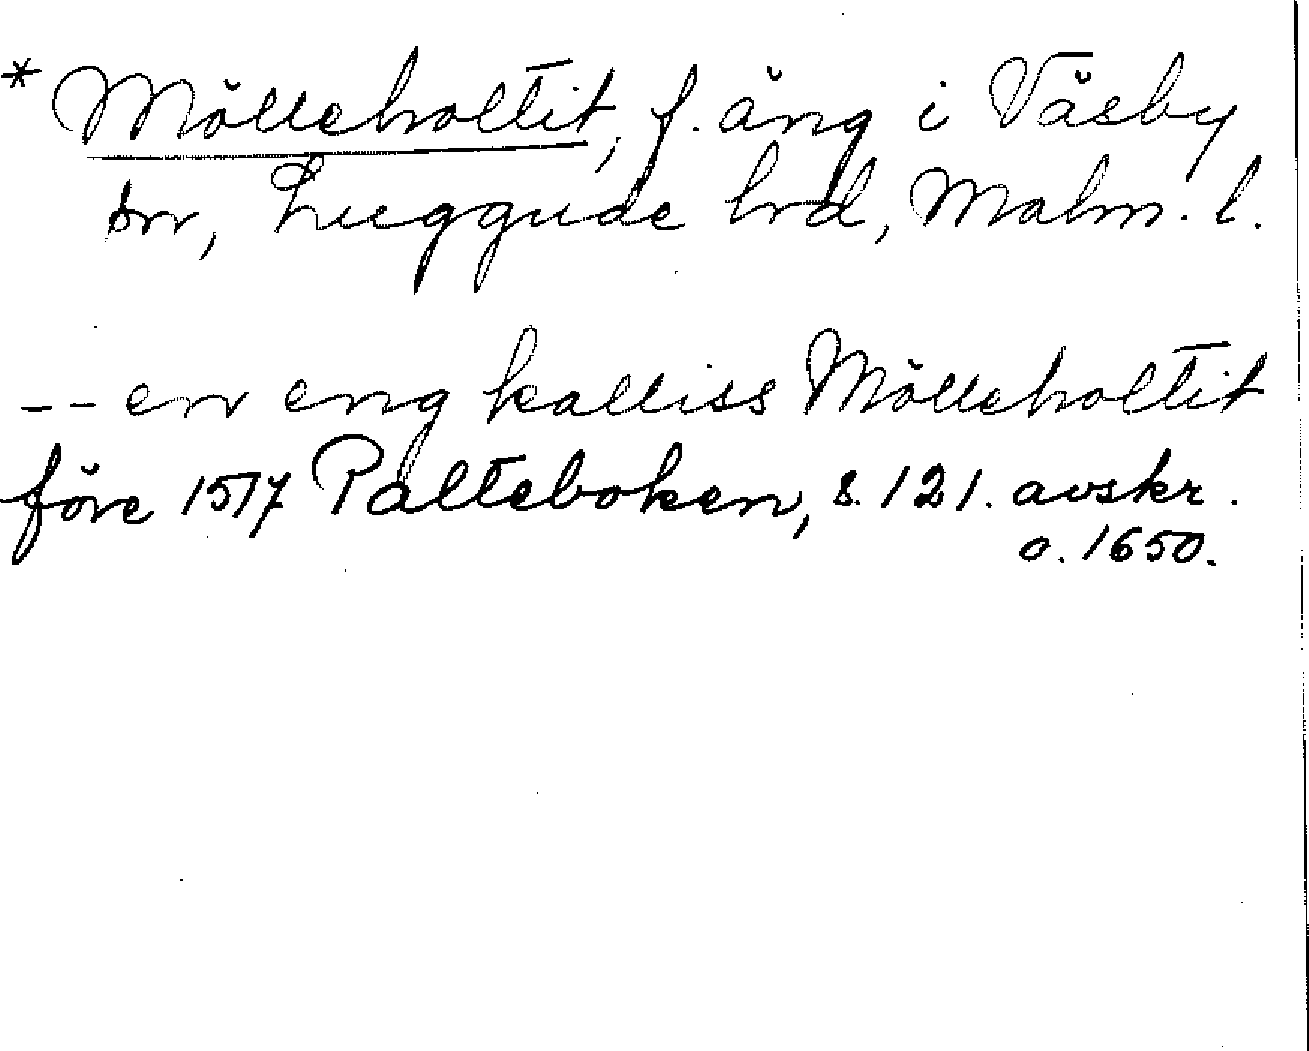 * Mölleholtit, f. äng i Väsby
sn, Luggude hrd, Malm. l.
-- en eng kalliss Mölleholtit
före 1517 Palteboken, s. 121. avskr.
o. 1650.